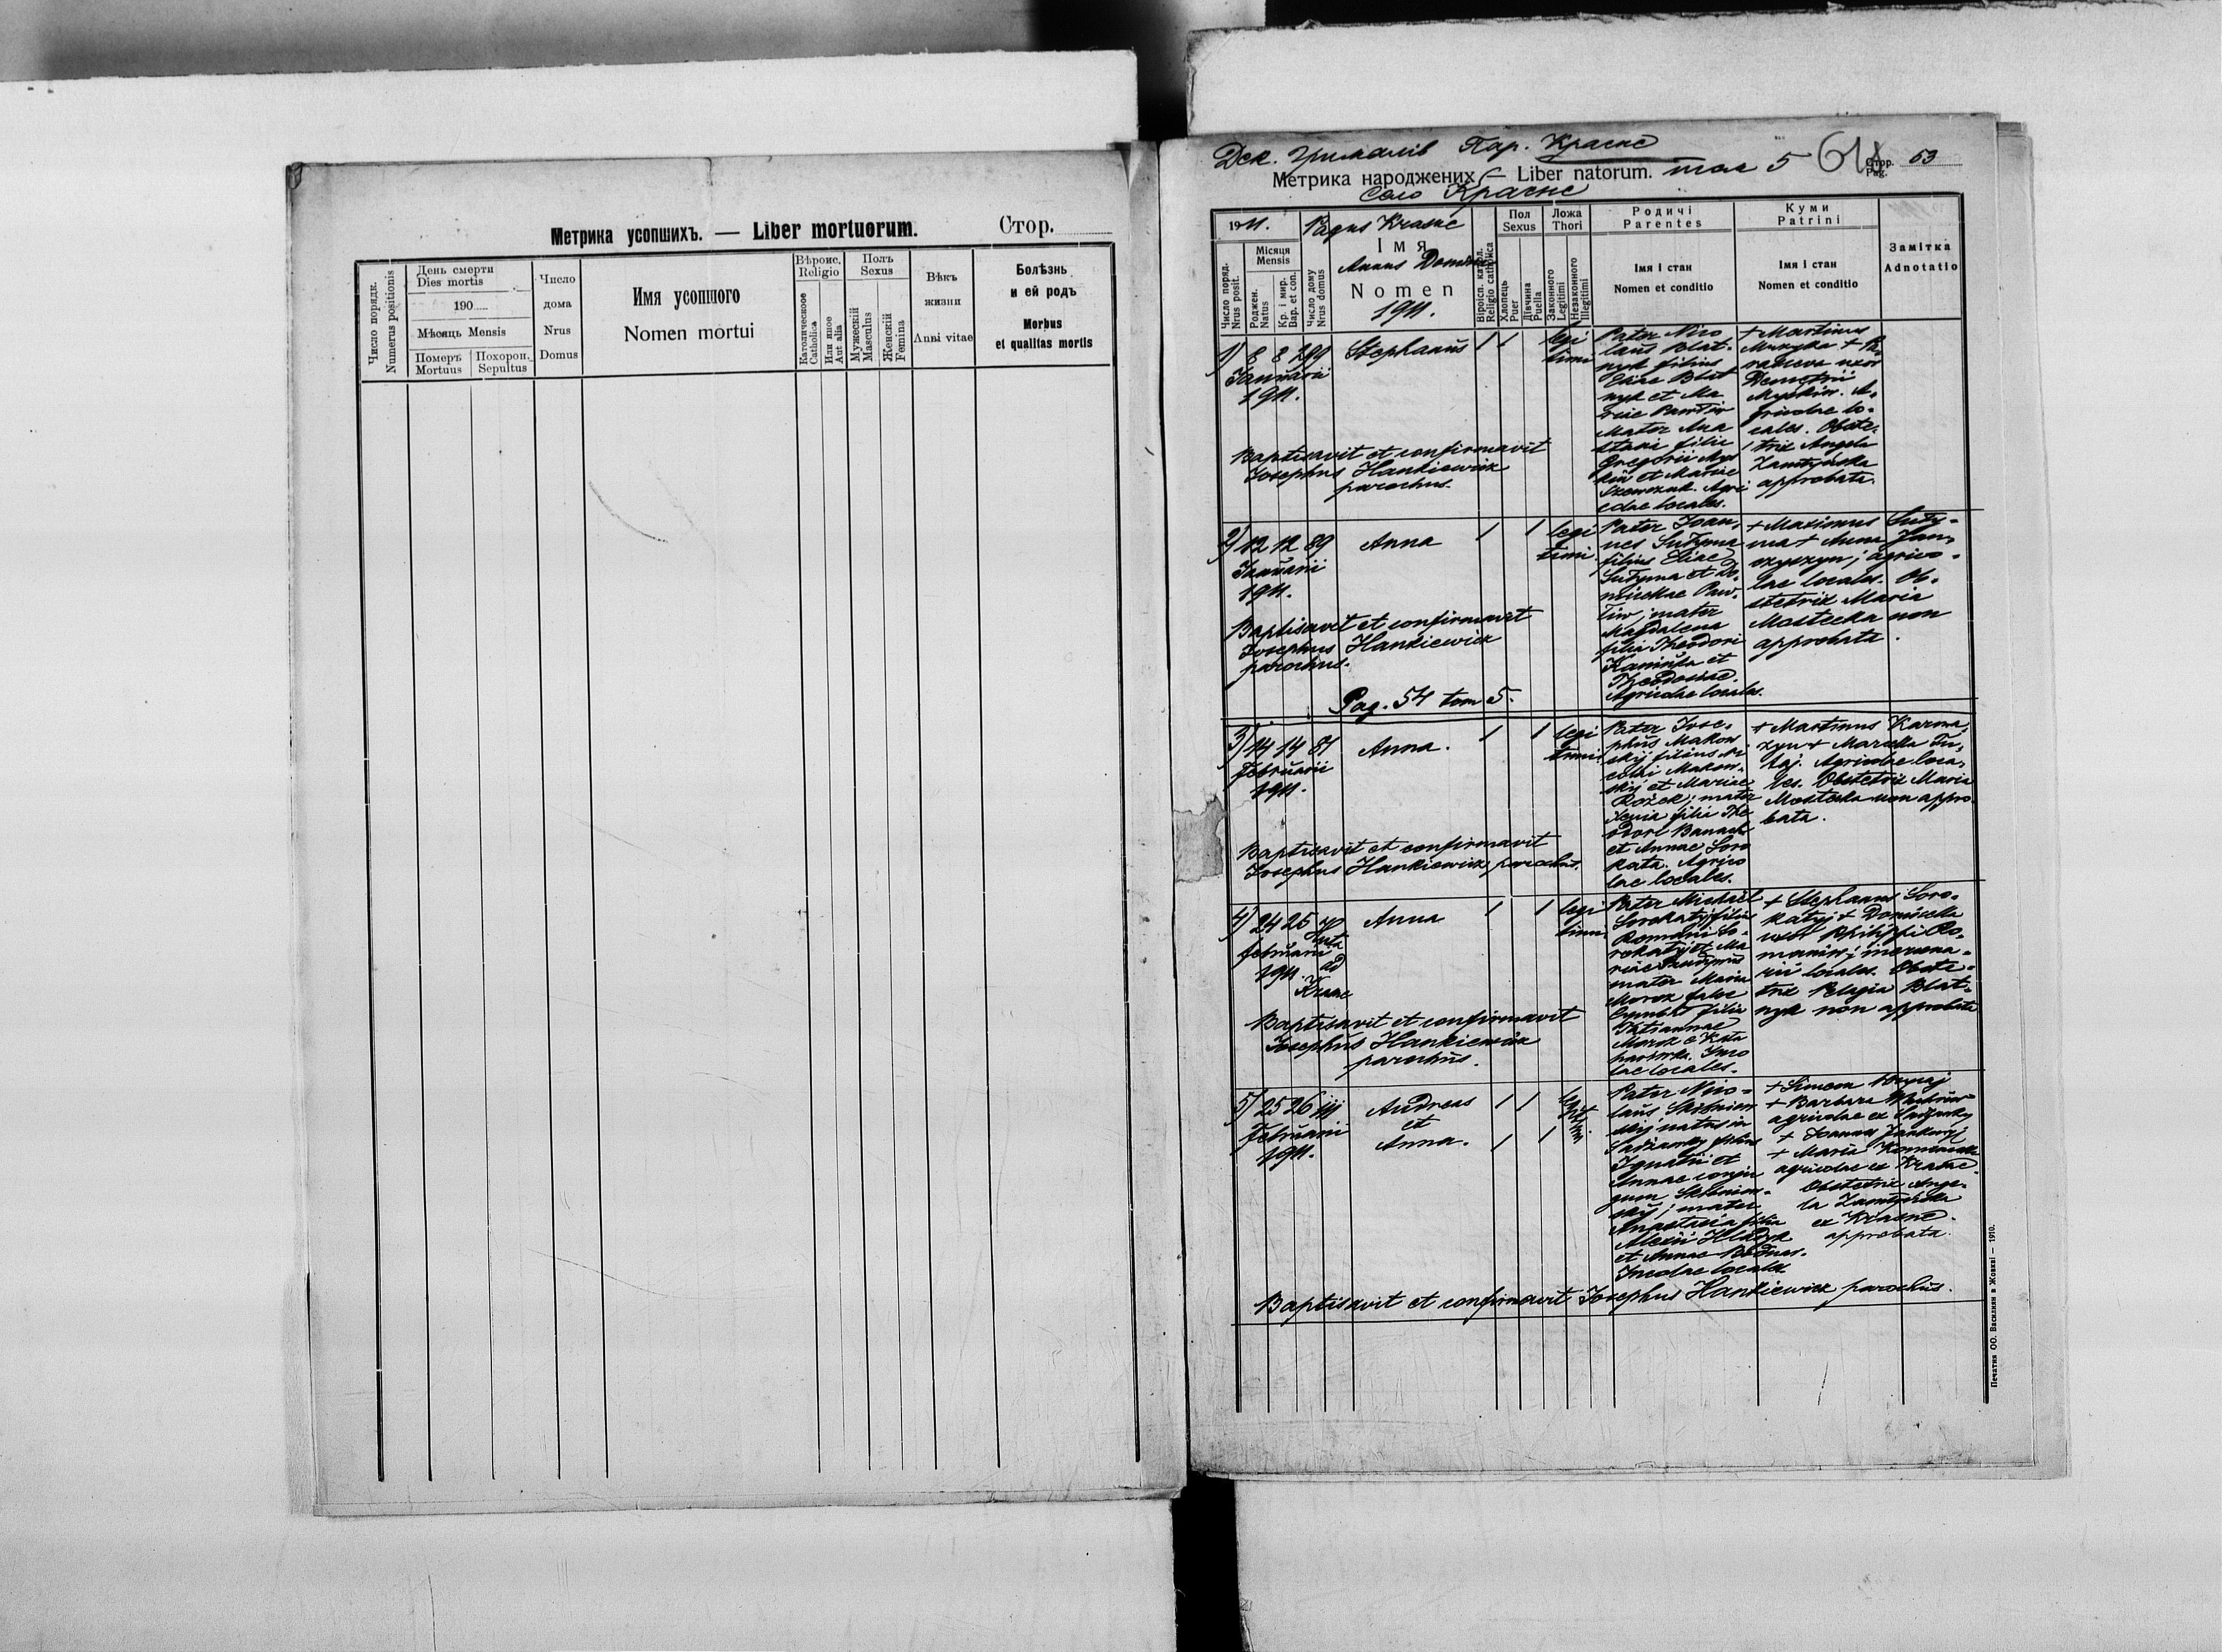 Метрика усопшихъ. — Liber mortuorum. Стор.
Число порядк.
Numerus positionis
День смерти
Dies mortis
190
Мѣсяцъ Mensis
Померъ
Mortuus
Похорон.
Sepultus
Число
дома
Nrus
Domus
Имя усопшого
Nomen mortui
Вѣроис.
Religio
Католическое
Catholica
Или иное
Aut alia
Полъ
Sexus
Мужескій
Masculus
Женскій
Femina
Вѣкъ
жизни
Anni vitae
Болѣзнь
и ей родъ
Morbus
et qualitas mortis
Дек. Грималів Пар. Красне
Метрика народжених — Liber natorum. том 5 Стор. 53
Pag.
Село Красне
1911.
Число поряд.
Nrus posit.
Місяця
Mensis
Роджен.
Natus
Кр. і мир.
Bap. et con.
Число дому
Nrus domus
Pagus Krasne
Імя
Annus Domini
Nomen
1911.
Віроісп. катол.
Religio catholica
Пол
Sexus
Хлопець
Puer
Дівчина
Puella
Ложа
Thori
Законного
Legitimi
Незаконного
Illegitimi
Родичі
Parentes
Імя і стан
Nomen et conditio
Куми
Patrini
Імя і стан
Nomen et conditio
Замітка
Adnotatio
1) 8 8 299 Stephanus 1 1 legi
timi
Januarii
1911.
Pater Nico
laus Blat-
nyk filius
Eliae Blat
nyk et Ma
riae Pawliw
Mater Ana
stasia filia
Gregorii Mys
kiw et Mariae
Szewczuk. Agri
colae locales.
+ Martinus
Muzyka + Pa
rasceva uxor
Demetrii
Myskiw. A-
gricolae lo-
cales. Obste-
trix Angela
approbata.
Baptisavit et confirmavit
Josephus Hankiewicz
parochus.
2) 12 12 89 Anna 1 1 legi
timi.
Januarii
1911.
Pater Joan-
nes
filius Eliae
et Do-
Paw-
liw; mater
Magdalena
filia Theodori
et
Theodosiae.
Agricolae locales.
+ Maximus
+ Anna
agrico-
lae locales. Ob-
stetrix Maria
Mostecka non
approbata.
Baptisavit et confirmavit
Josephus Hankiewicz
parochus.
Pag. 54 tom 5.
3) 14 14 81 Anna. 1 1 legi
timi.
Februarii
1911.
Pater Jose-
phus Makow
skij filius Ni
colai Makow-
skij et Mariae
Rożek; mater
Xenia filia The
odori Banach
et Annae Soro
kata. Agrico
lae locales.
+ Martinus
+
Agricolae loca-
les. Obstetrix Maria
Mostecka non appro
bata.
Baptisavit et confirmavit
Josephus Hankiewicz parochus.
4) 24 25 Anna 1 1 legi
timi.
Februarii
1911. ad
Krasne
Pater Michael
Sorokatyj filius
Romani So-
rokatyj et Ma
riae
mater Maria
Moroz
filia
Moroz
locales.
+ Stephanus Soro-
katyj + Domicella
uxor Philippi Ro-
maniw; mercena-
rii locales. Obste-
trix Pelagia Blat-
nyk non approbata
Baptisavit et confirmavit
Josephus Hankiewicz
parochus.
5) 25 26 111 Andreas 1 1
et
Anna. 1 1
Februarii
1911.
Pater Nico-
laus
natus in
filius
Ignatii et
Annae conju
gum
mater
Anastasia filia
Alexii Hladyk
et Annae Bodnar.
Incolae locales.
+ Simeon
+ Barbara
agricolae ex
+ Joannes
+ Maria
agricolae ex Krasne.
Obstetrix Ange-
la
ex Krasne.
approbata.
Baptisavit et confirmavit Josephus Hankiewicz parochus.
Печатня ОО. Василиян в Жовкві — 1910.